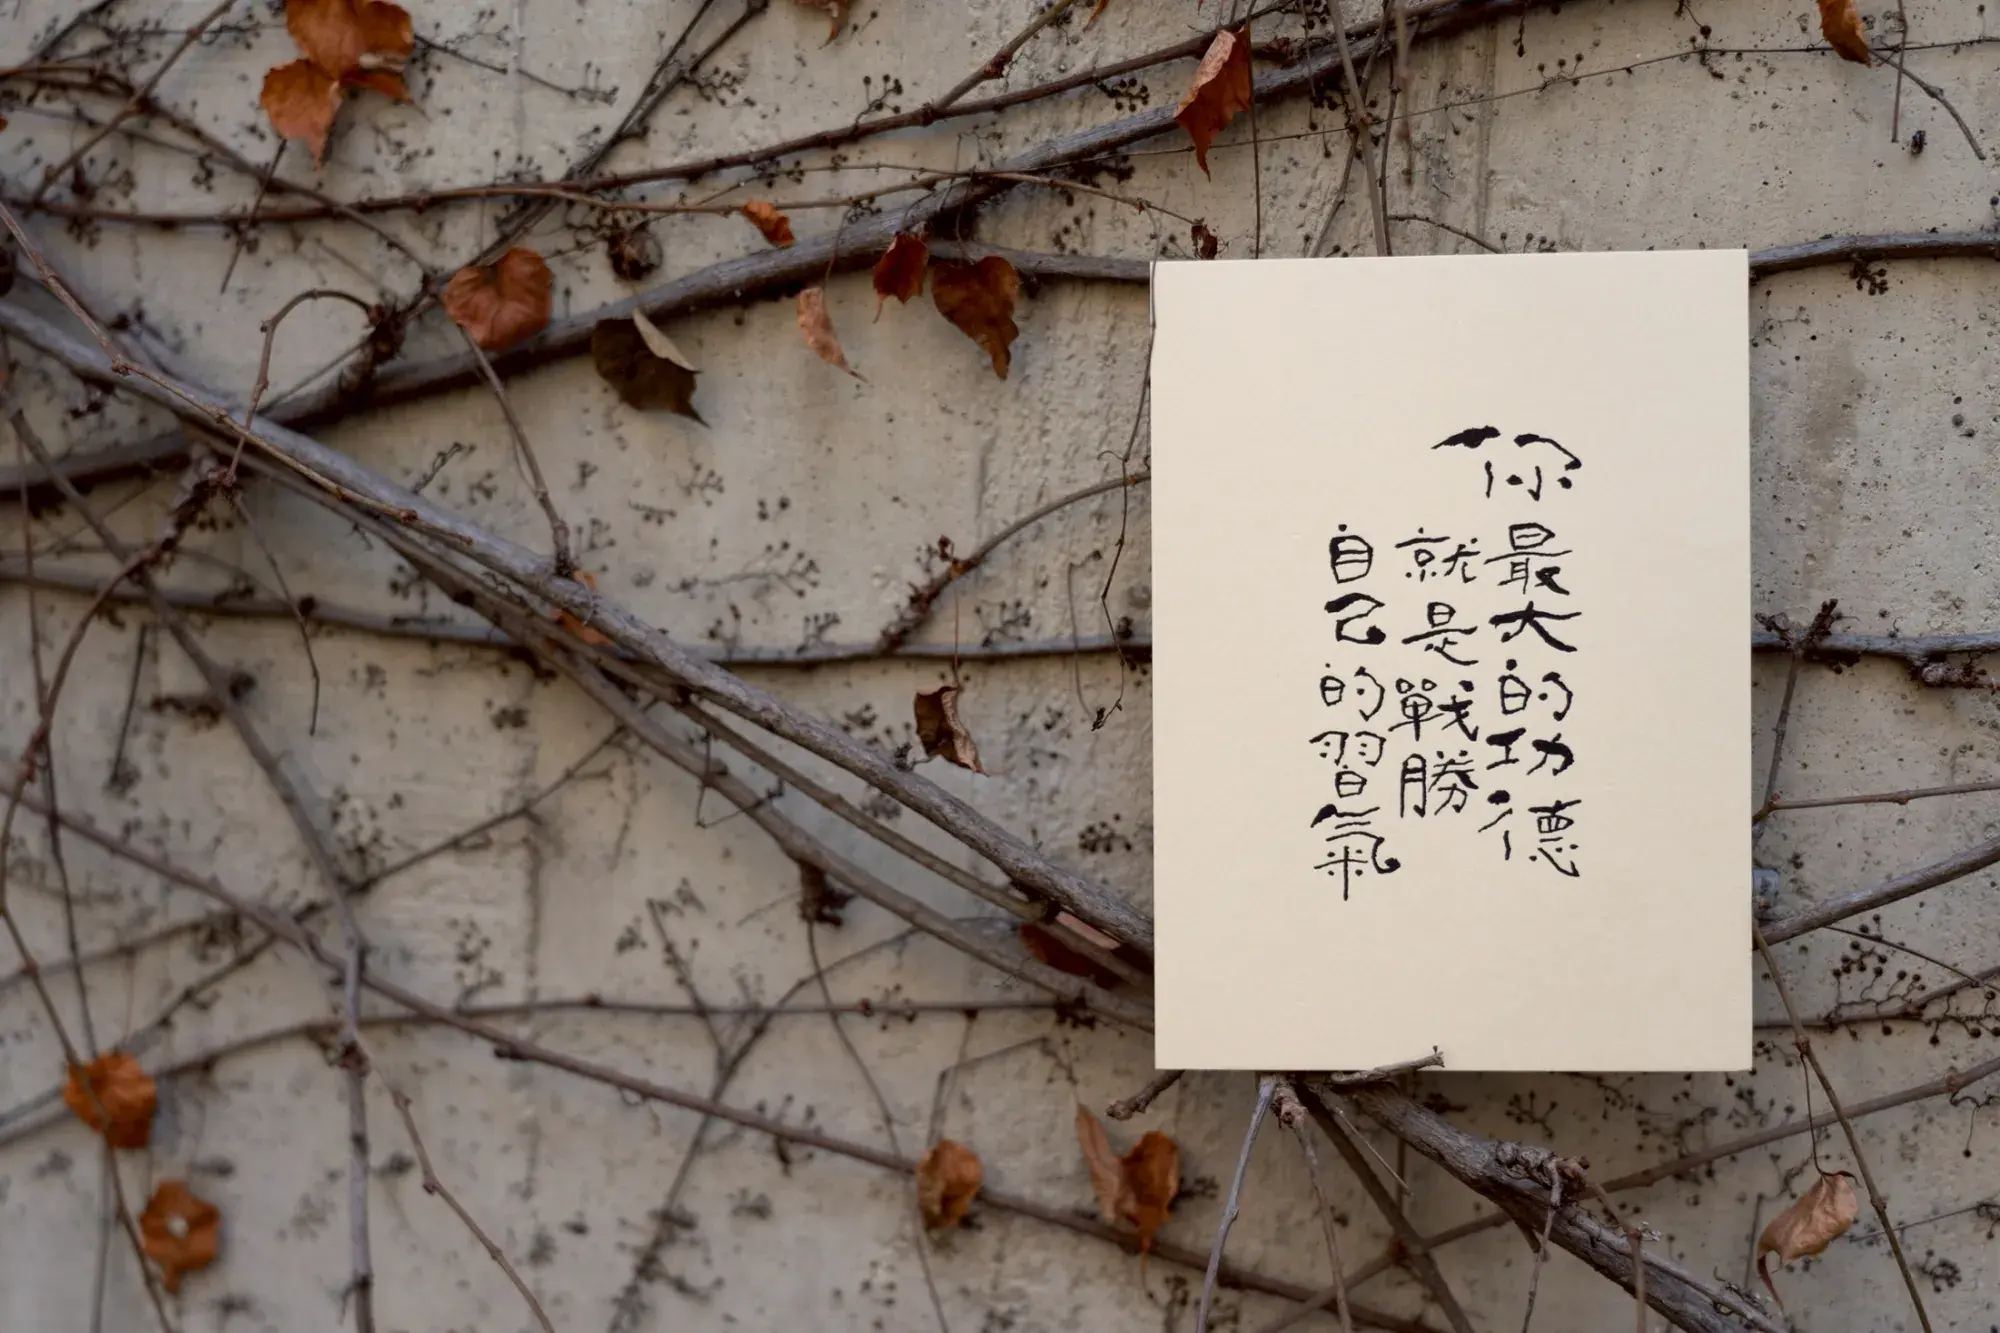 你最大的功德
就是戰勝
自己的習氣